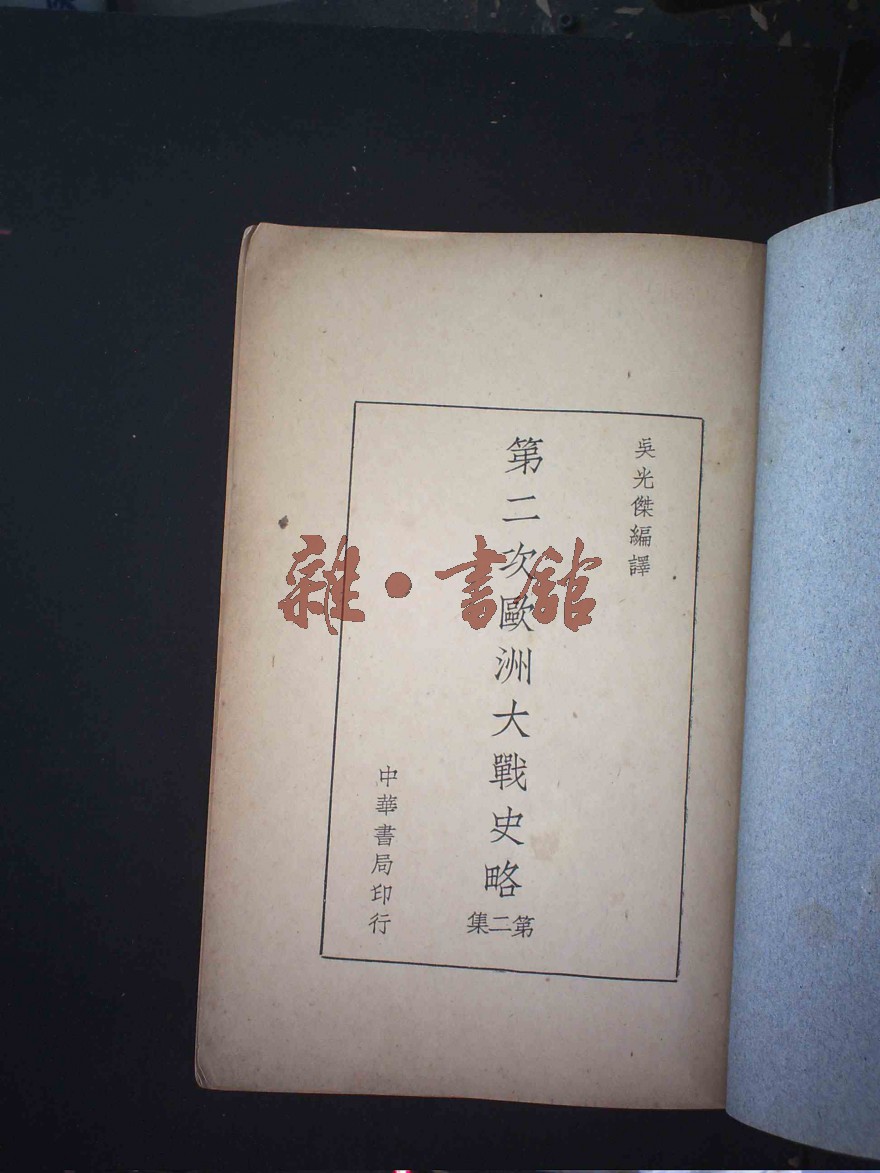 吳光傑編譯
第二次歐洲大戰史略
第二集
中華書局印行
雜·書館